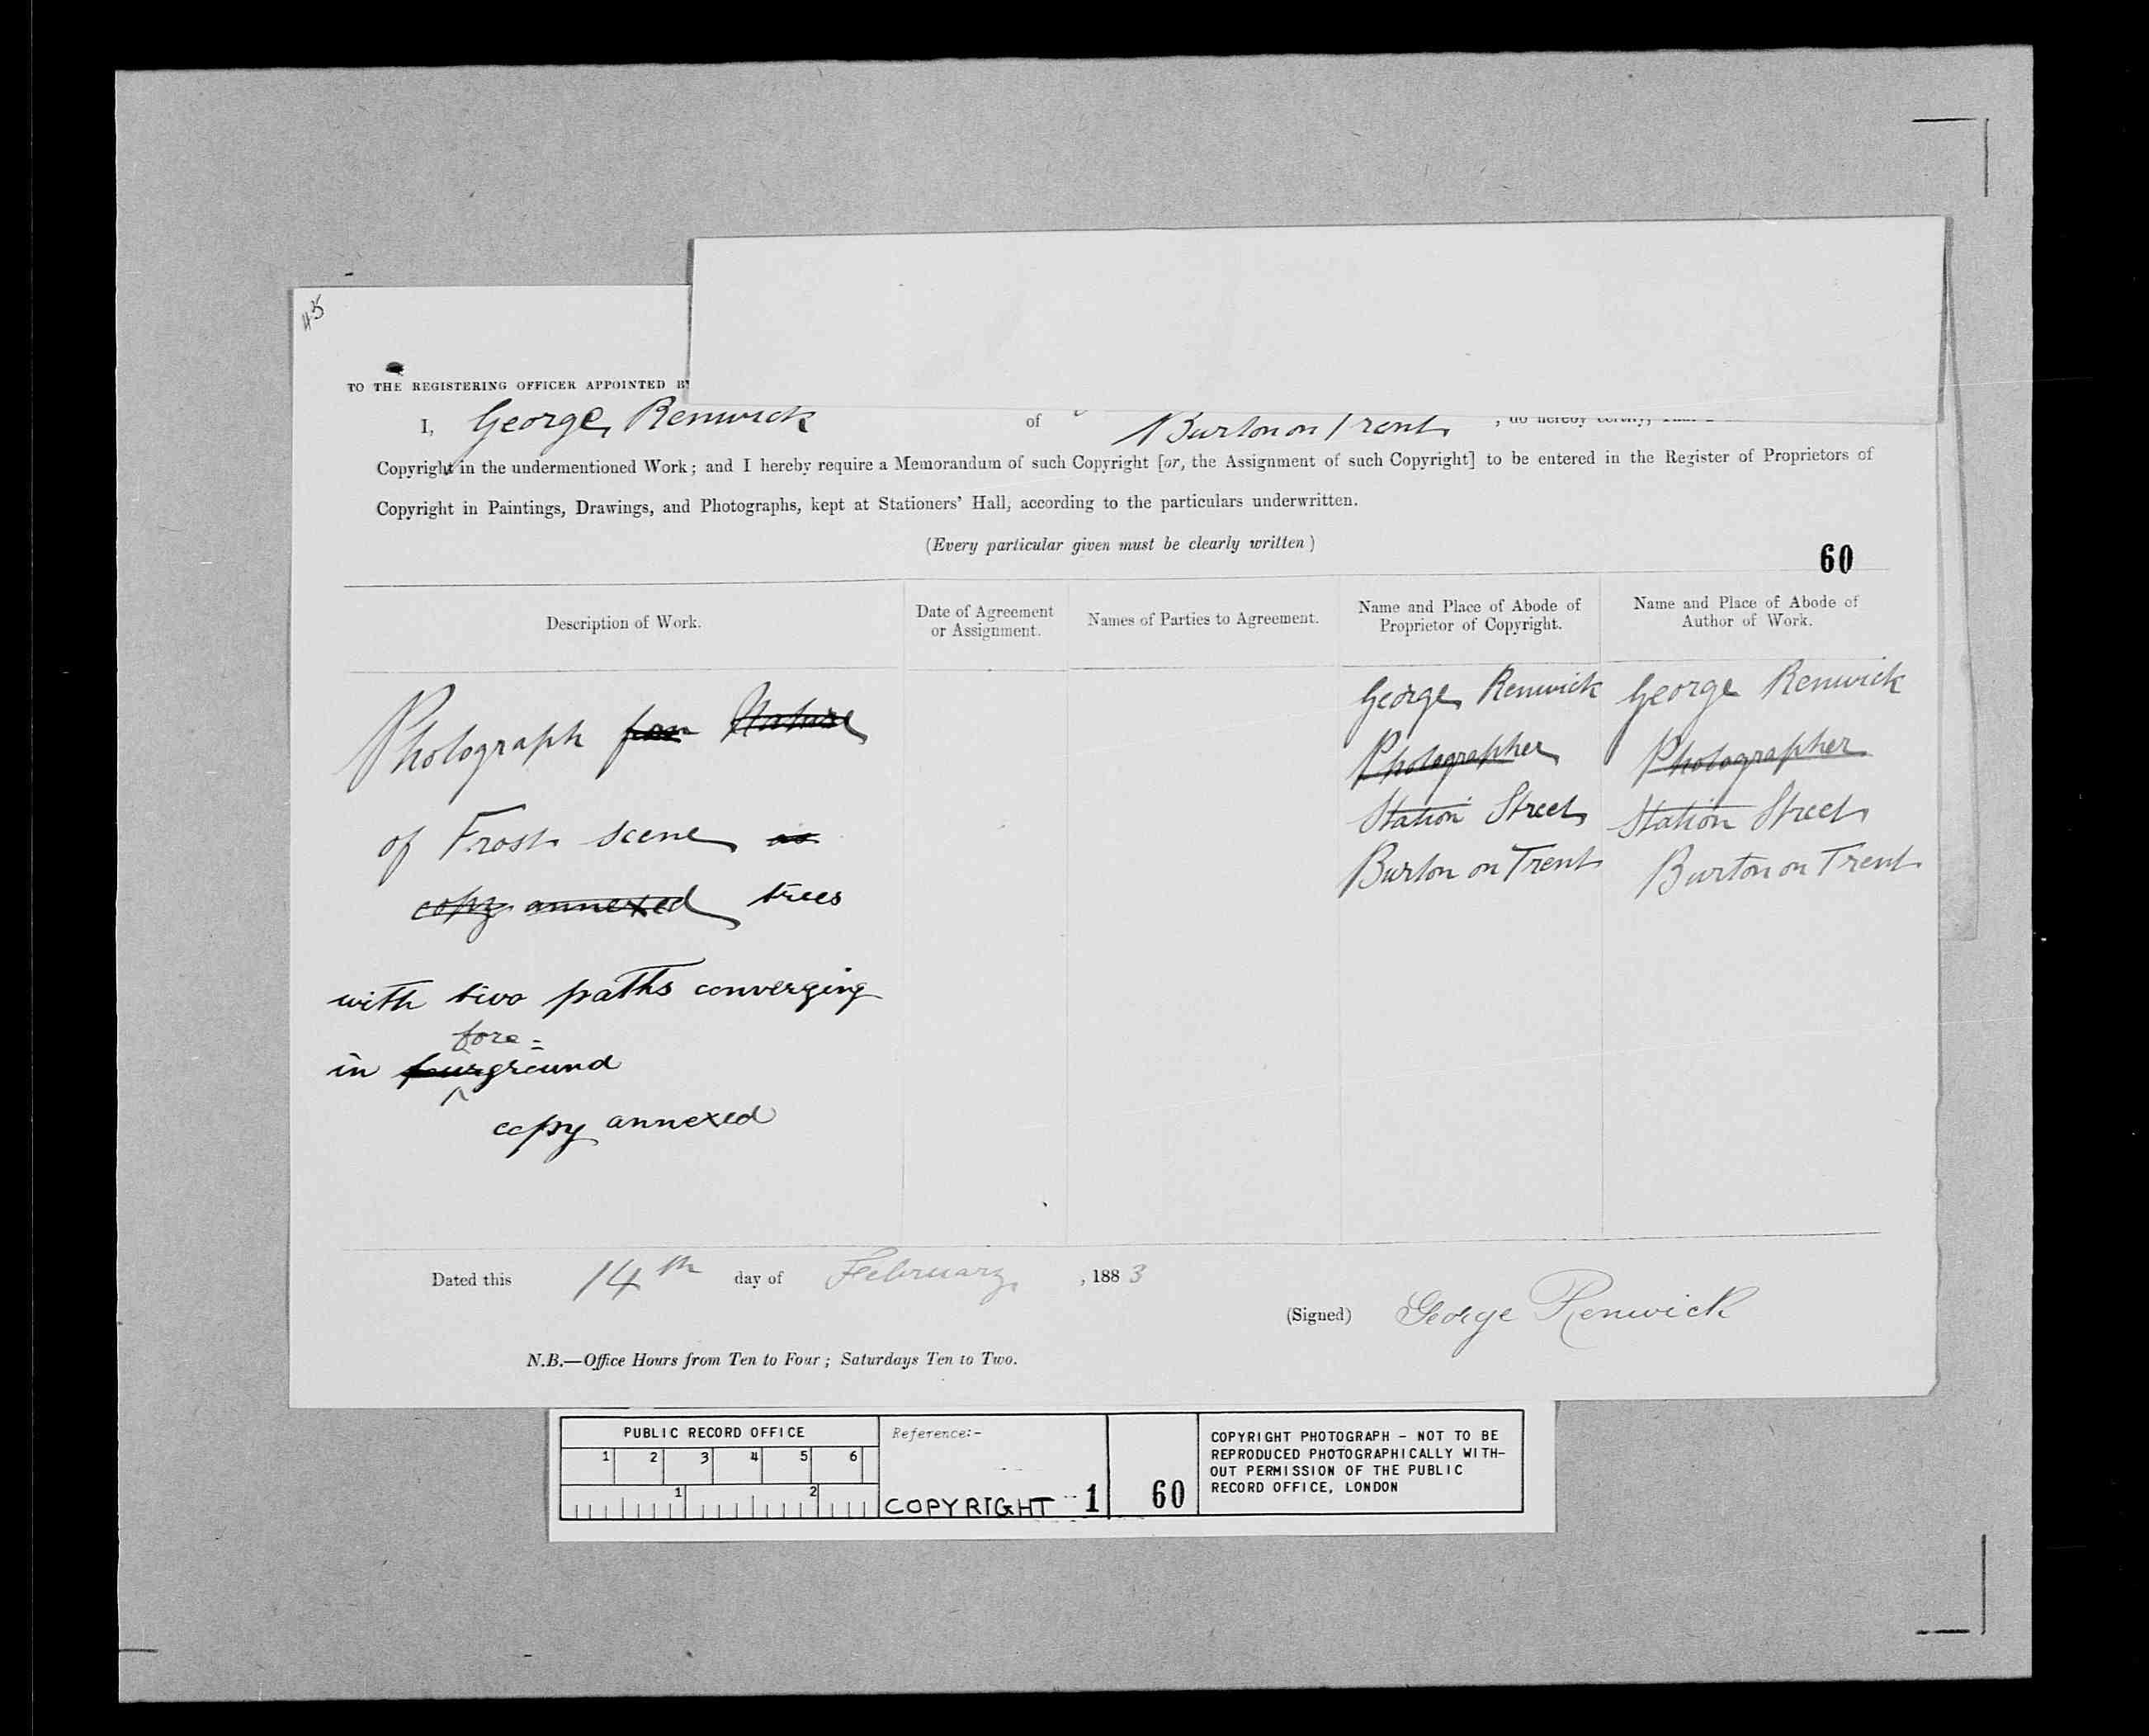 45
TO THE REGISTERING OFFICER APPOINTED BY
I, George Renwick of Burton on Trent , do hereby certify,
Copyright in the undermentioned Work; and I hereby require a Memorandum of such Copyright [or, the Assignment of such Copyright] to be entered in the Register of Proprietors of
Copyright in Paintings, Drawings, and Photographs, kept at Stationers' Hall, according to the particulars underwritten.
(Every particular given must be clearly written)
60
Description of Work.
Date of Agreement
or Assignment.
Names of Parties to Agreement.
Name and Place of Abode of
Proprietor of Copyright.
Name and Place of Abode of
Author of Work.
Photograph from Nature
of Frost scene as
copy annexed trees
with two paths converging
fore=
in fourground
copy annexed
George Renwick
Photographer
Station Street
Burton on Trent
George Renwick
Photographer
Station Street
Burton on Trent
Dated this 14th day of February , 1883
(Signed) George Renwick
N.B.—Office Hours from Ten to Four; Saturdays Ten to Two.
PUBLIC RECORD OFFICE
1 2 3 4 5 6
1 2
Reference:-
COPYRIGHT 1
60
COPYRIGHT PHOTOGRAPH - NOT TO BE
REPRODUCED PHOTOGRAPHICALLY WITH-
OUT PERMISSION OF THE PUBLIC
RECORD OFFICE, LONDON